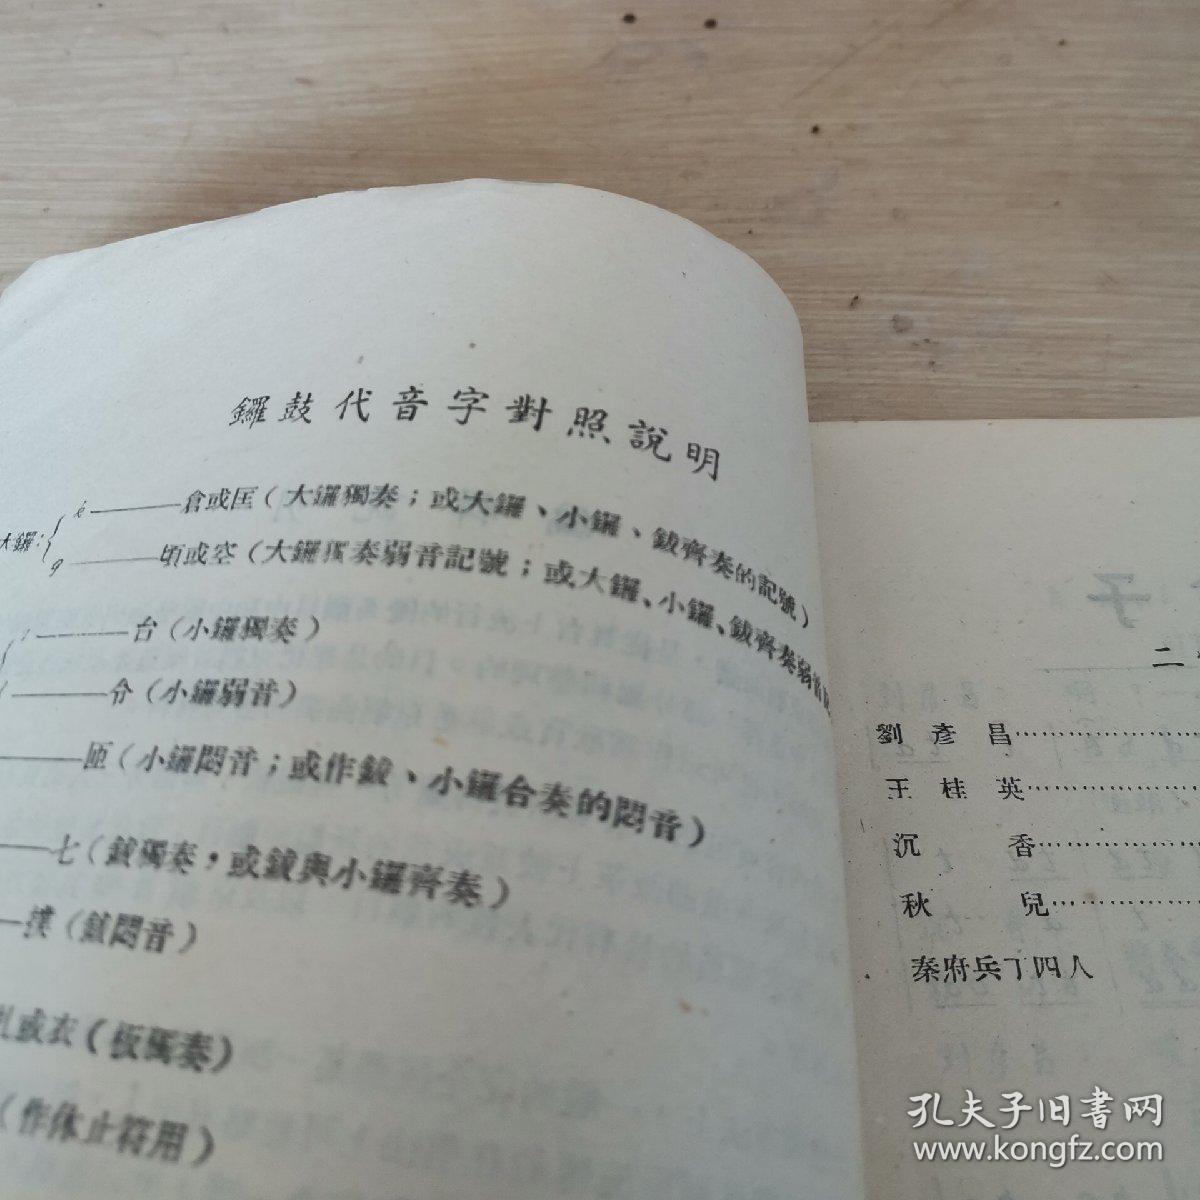 鑼鼓代音字對照說明
大鑼：
倉或匡（大鑼獨奏；或大鑼、小鑼、鈸齊奏的記號）
q——頃或空（大鑼獨奏弱音記號；或大鑼、小鑼、鈸齊奏弱音
——台（小鑼獨奏）
——令（小鑼弱音）
——匝（小鑼悶音；或作鈸、小鑼合奏的悶音）
——七（鈸獨奏，或鈸與小鑼齊奏）
——撲（鈸悶音）
扎或衣（板獨奏）
（作休止符用）
二
劉彥昌……
王桂英……
沉香……
秋兒……
秦府兵丁四人
孔夫子旧書网
www.kongfz.com